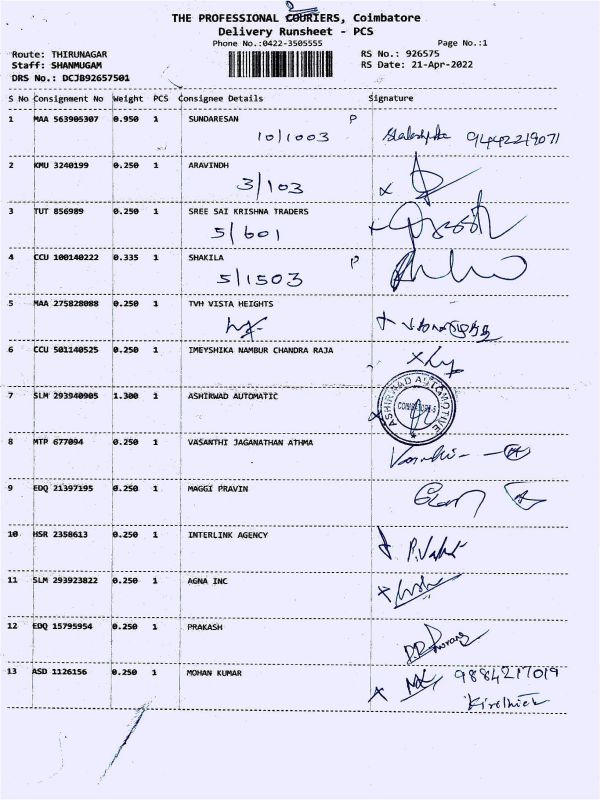 THE PROFESSIONAL COURIERS, Coimbatore
Delivery Runsheet - PCS
Phone No.:0422-3505555
Page No.:1
Route: THIRUNAGAR
RS No.: 926575
Staff: SHANMUGAM
RS Date: 21-Apr-2022
DRS No.: DCJB92657501
S No Consignment No Weight PCS Consignee Details Signature
1 MAA 563905307 0.950 1 SUNDARESAN P
10/1003 9442219071
2 KMU 3240199 0.250 1 ARAVINDH
3/103
3 TUT 856989 0.250 1 SREE SAI KRISHNA TRADERS
5/601
4 CCU 100140222 0.335 1 SHAKILA P
5/1503
5 MAA 275828088 0.250 1 TVH VISTA HEIGHTS
6 CCU 501140525 0.250 1 IMEYSHIKA NAMBUR CHANDRA RAJA
7 SLM 293940905 1.300 1 ASHIRWAD AUTOMATIC
ASHIRWAD AUTOMOTIVE
8 MTP 677094 0.250 1 VASANTHI JAGANATHAN ATHMA
9 EDQ 21397195 0.250 1 MAGGI PRAVIN
10 HSR 2358613 0.250 1 INTERLINK AGENCY
11 SLM 293923822 0.250 1 AGNA INC
12 EDQ 15795954 0.250 1 PRAKASH
13 ASD 1126156 0.250 1 MOHAN KUMAR
9884217019